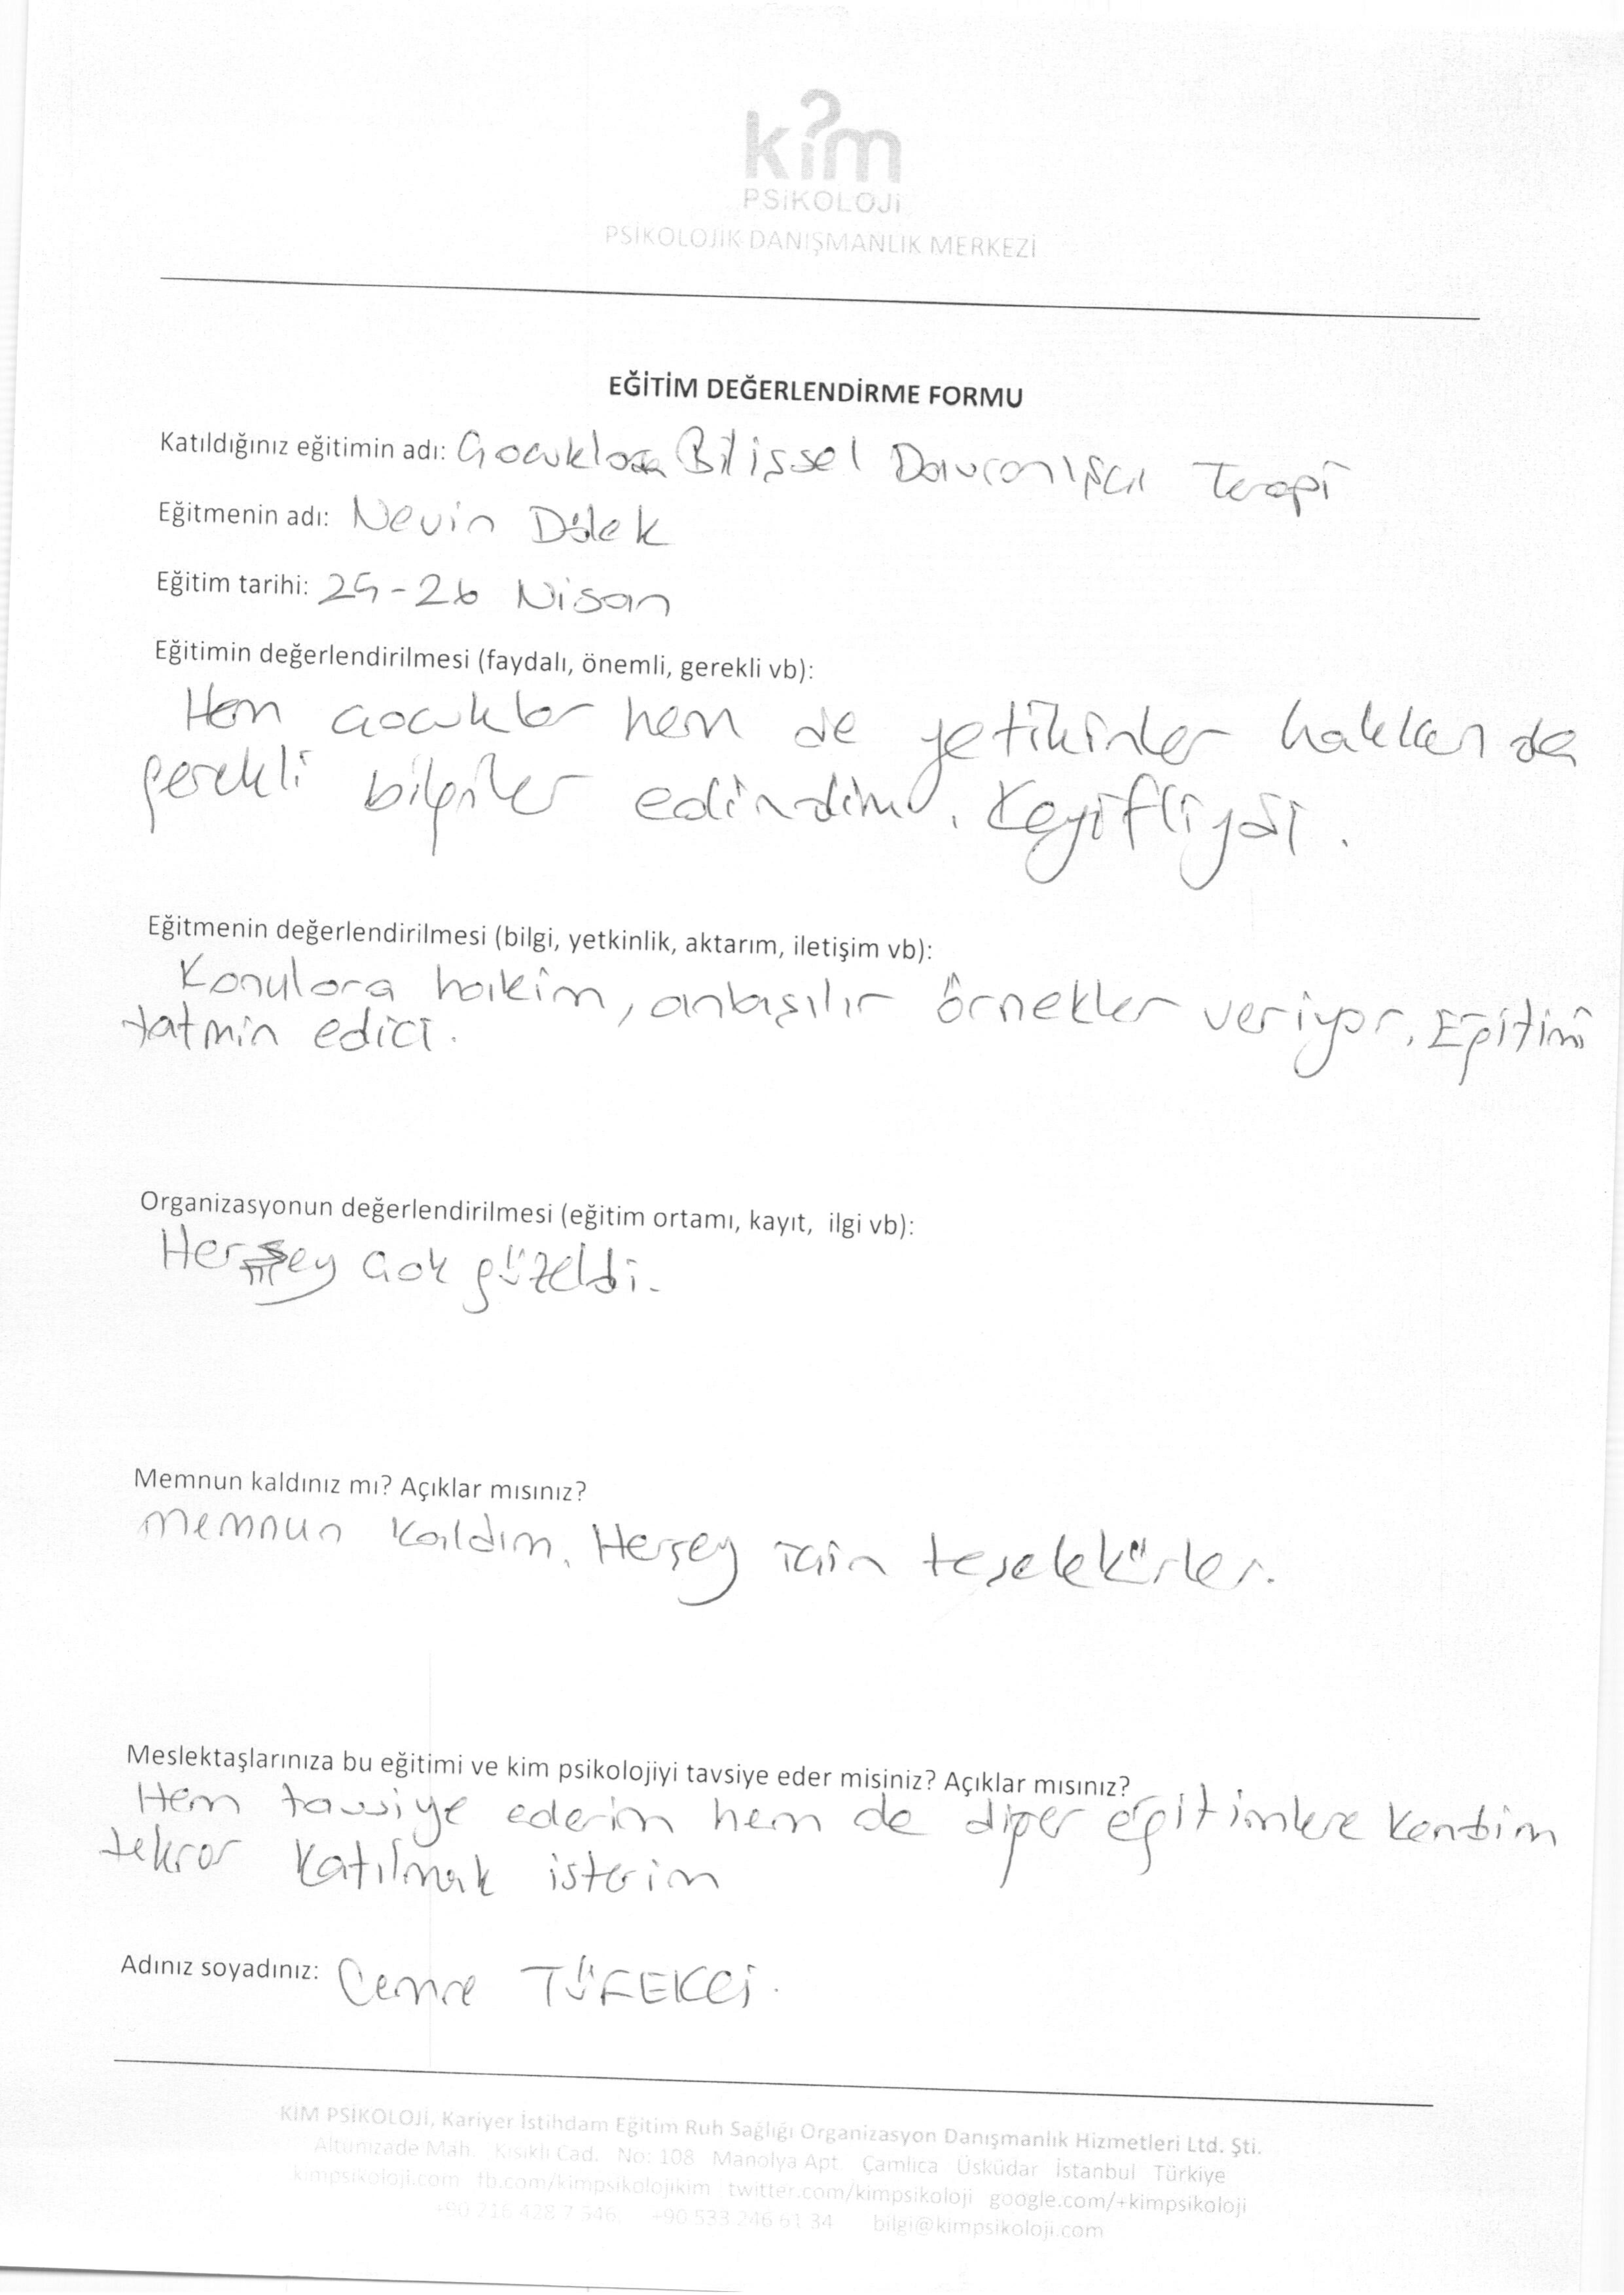 kim
PSiKOLOJi
PSİKOLOJİK DANIŞMANLIK MERKEZİ
EĞİTİM DEĞERLENDİRME FORMU
Katıldığınız eğitimin adı: Çocuklara Bilişsel Davranışçı Terapi
Eğitmenin adı: Nevin Dölek
Eğitim tarihi: 25-26 Nisan
Eğitimin değerlendirilmesi (faydalı, önemli, gerekli vb):
Hem çocuklar hem de yetikinler hakkında
gerekli bilgiler edindim. Keyifliydi.
Eğitmenin değerlendirilmesi (bilgi, yetkinlik, aktarım, iletişim vb):
Konulara hakim, anlaşılır örnekler veriyor. Eğitimi
tatmin edici.
Organizasyonun değerlendirilmesi (eğitim ortamı, kayıt, ilgi vb):
Herşey çok güzeldi.
Memnun kaldınız mı? Açıklar mısınız?
Memnun kaldım. Herşey için teşekkürler.
Meslektaşlarınıza bu eğitimi ve kim psikolojiyi tavsiye eder misiniz? Açıklar mısınız?
Hem tavsiye ederim hem de diğer eğitimlere kendim
tekrar katılmak isterim
Adınız soyadınız: Cemre TÜFEKCİ.
KİM PSİKOLOJİ, Kariyer İstihdam Eğitim Ruh Sağlığı Organizasyon Danışmanlık Hizmetleri Ltd. Şti.
Altunizade Mah. Kısıklı Cad. No: 108 Manolya Apt Çamlıca Üsküdar İstanbul Türkiye
kimpsikoloji.com fb.com/kimpsikolojikim twitter.com/kimpsikoloji google.com/+kimpsikoloji
+90 216 428 7 546 +90 533 246 61 34 bilgi@kimpsikoloji.com